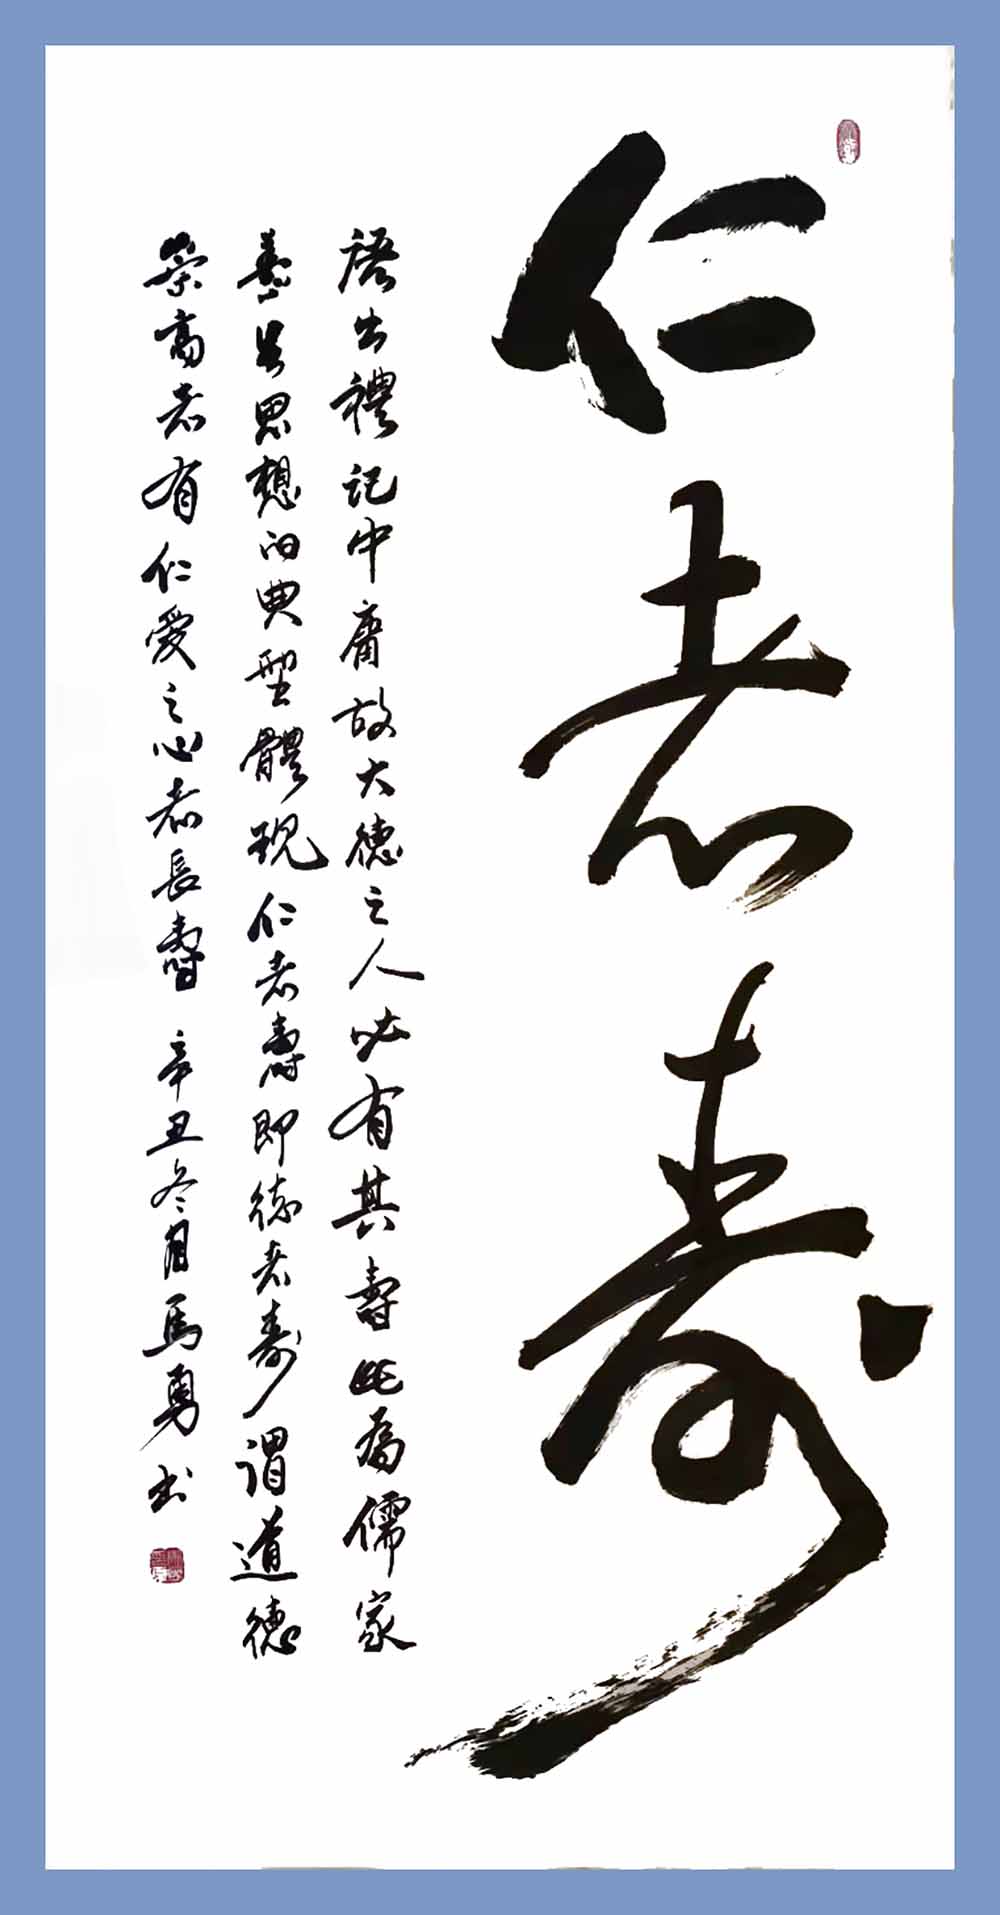 仁者寿
語出禮記中庸故大德之人必有其壽此為儒家
養生思想的典型體現仁者壽即德者寿謂道德
崇高者有仁愛之心者長壽 辛丑冬月馬勇书